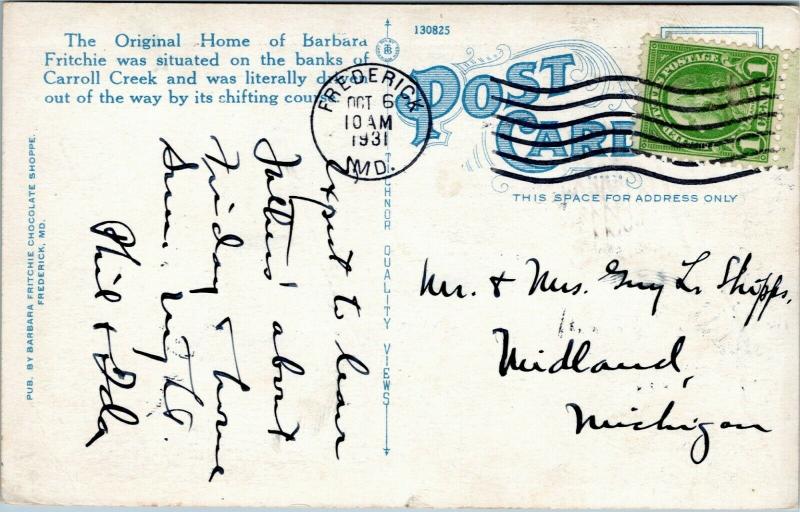 The Original Home of Barbara
Fritchie was situated on the banks of
Carroll Creek and was literally
out of the way by its shifting
130825
POST
CARD
THIS SPACE FOR ADDRESS ONLY
FREDERICK
OCT 6
10 AM
1931
MD.
U.S. POSTAGE
1 1
PUB. BY BARBARA FRITCHIE CHOCOLATE SHOPPE.
FREDERICK, MD.
TECHNOR QUALITY VIEWS
expect to leave
about
Friday & home
Sun. night.
Phil & Ida
Mr. & Mrs. Guy L. Shipps,
Midland,
Michigan